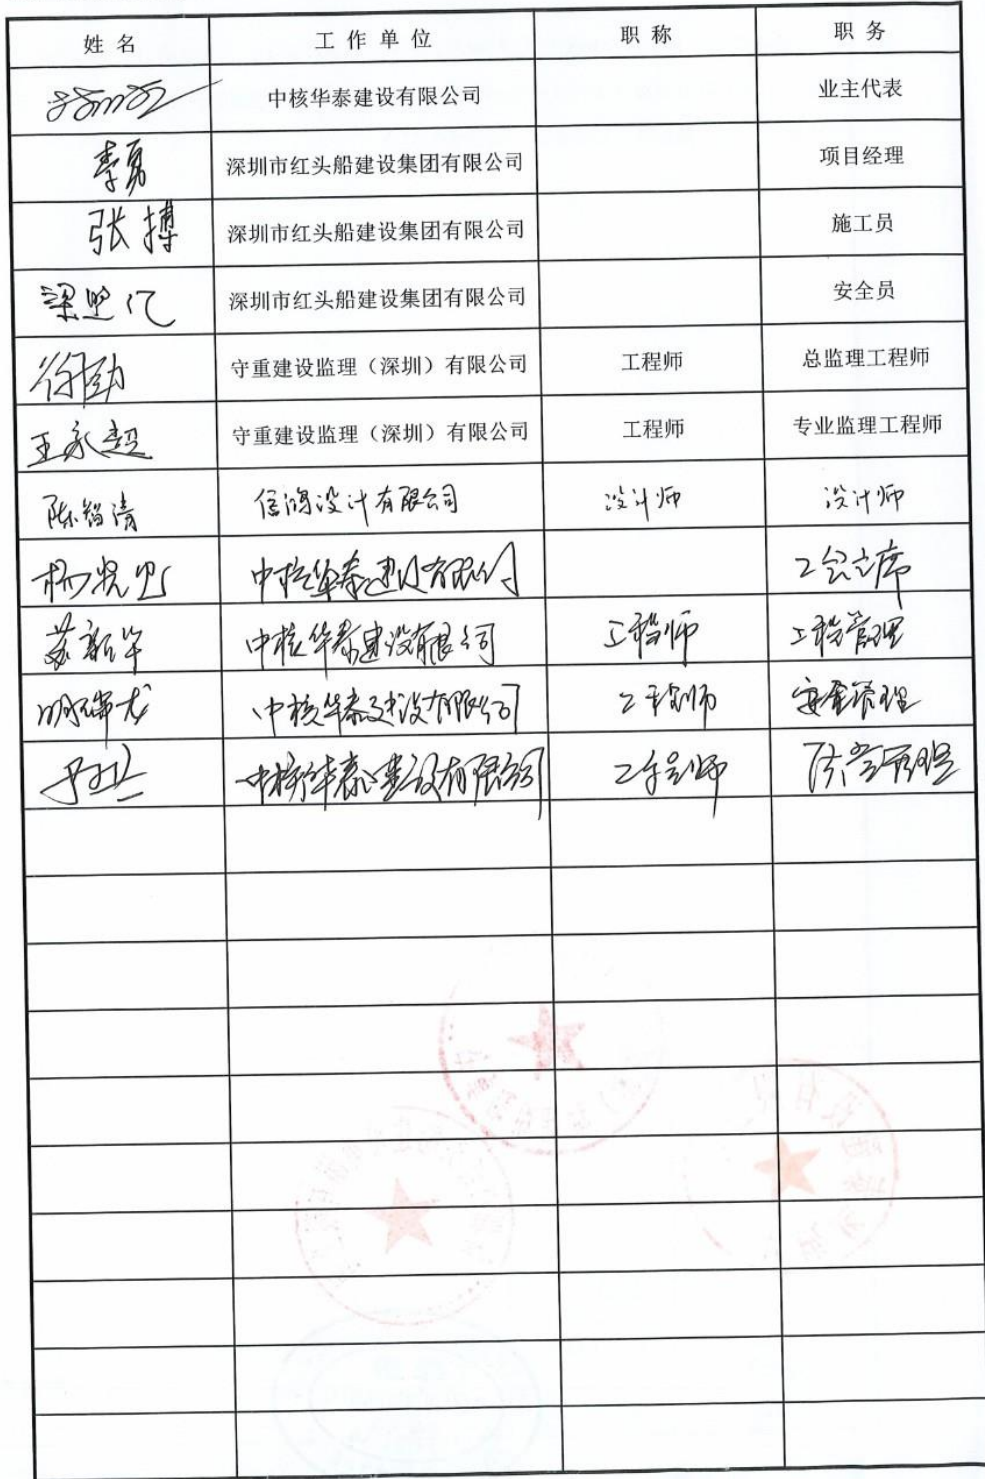 姓名 工作单位 职称 职务
中核华泰建设有限公司 业主代表
李勇 深圳市红头船建设集团有限公司 项目经理
张搏 深圳市红头船建设集团有限公司 施工员
深圳市红头船建设集团有限公司 安全员
徐劲 守重建设监理（深圳）有限公司 工程师 总监理工程师
王永超 守重建设监理（深圳）有限公司 工程师 专业监理工程师
陈智清 信鸿设计有限公司 设计师 设计师
中核华泰建设有限公司 工会主席
苏新华 中核华泰建设有限公司 工程师 工程管理
明瑞龙 中核华泰建设有限公司 工程师 安全管理
中核华泰建设有限公司 工程师